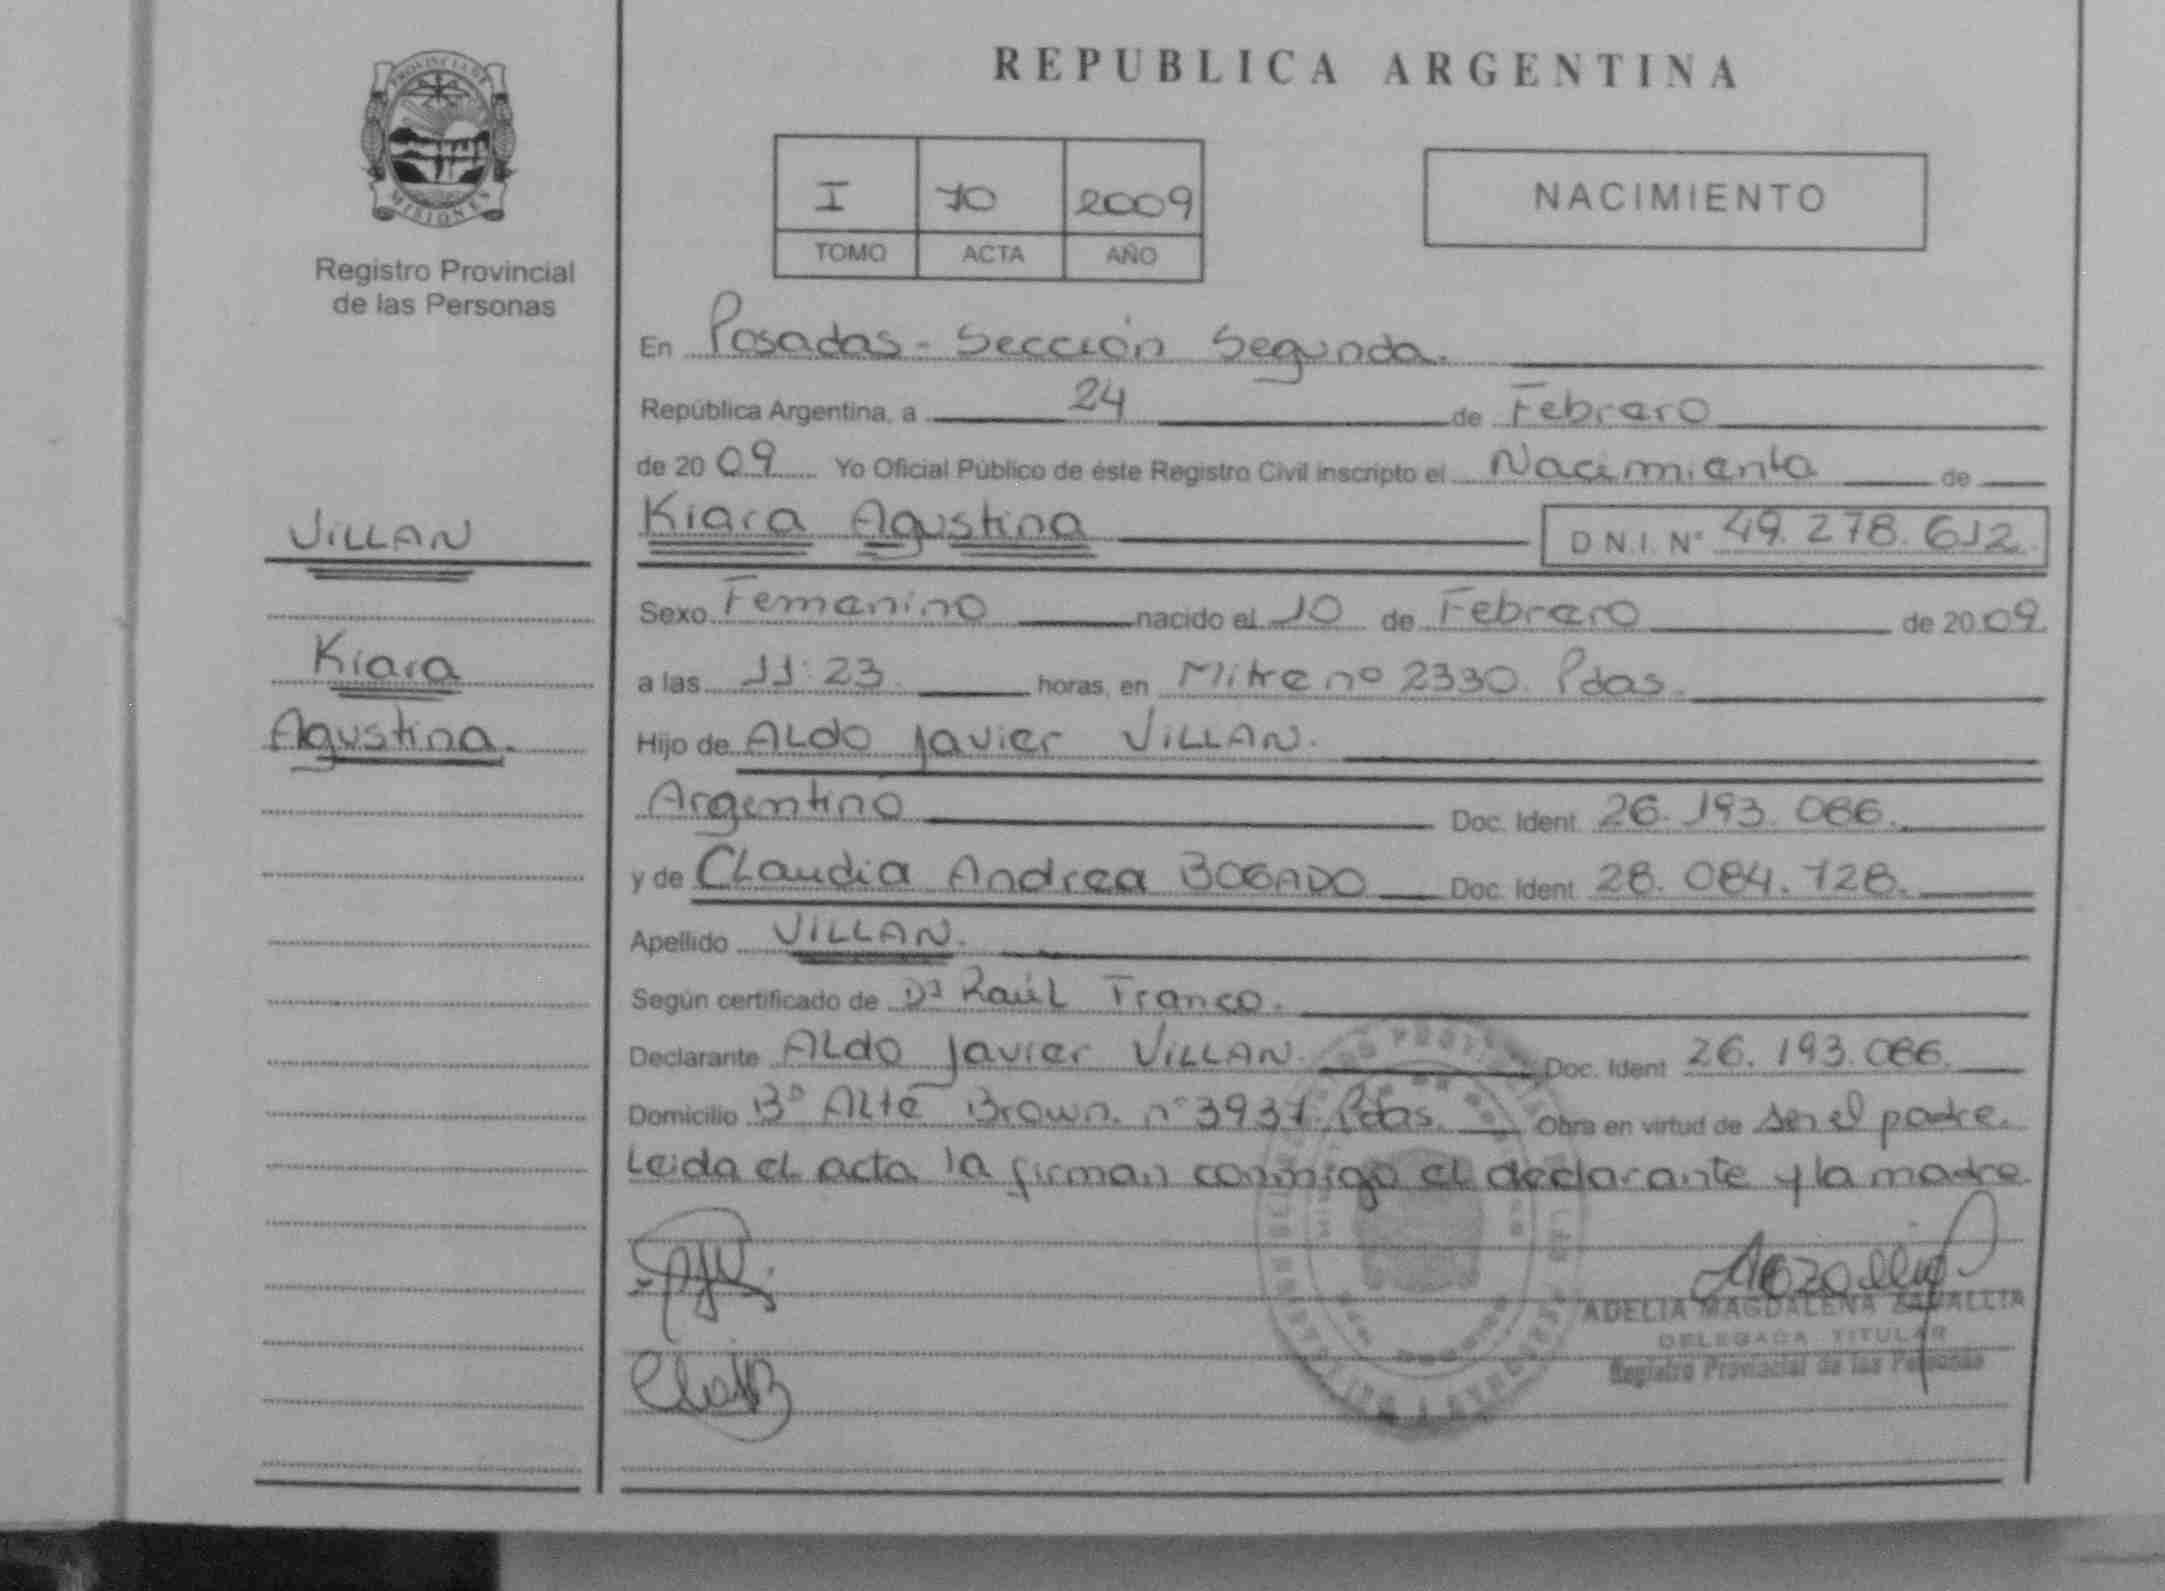 PROVINCIA DE
MISIONES
Registro Provincial
de las Personas
VILLAN
Kiara
Agustina.
REPUBLICA ARGENTINA
I 70 2009
TOMO ACTA AÑO
NACIMIENTO
En Posadas - Sección Segunda.
República Argentina, a 24 de Febrero
de 20 09 Yo Oficial Público de éste Registro Civil inscripto el Nacimiento de
Kiara Agustina D.N.I. Nº 49.278.612.
Sexo Femenino nacido el 10 de Febrero de 20 09
a las 11:23. horas, en Mitre nº 2330. Pdas.
Hijo de ALdo Javier VILLAN.
Argentino Doc. Ident. 26.193.066.
y de CLaudia Andrea BOGADO Doc. Ident. 28.084.728.
Apellido VILLAN.
Según certificado de Dr Raúl Franco.
Declarante ALdo Javier VILLAN. Doc. Ident. 26.193.066.
Domicilio Bº ALte Brown. nº 3937. Pdas. Obra en virtud de ser el padre.
Leida el acta la firman conmigo el declarante y la madre.
ADELIA MAGDALENA
DELEGADA TITULAR
Registro Provincial de las Personas